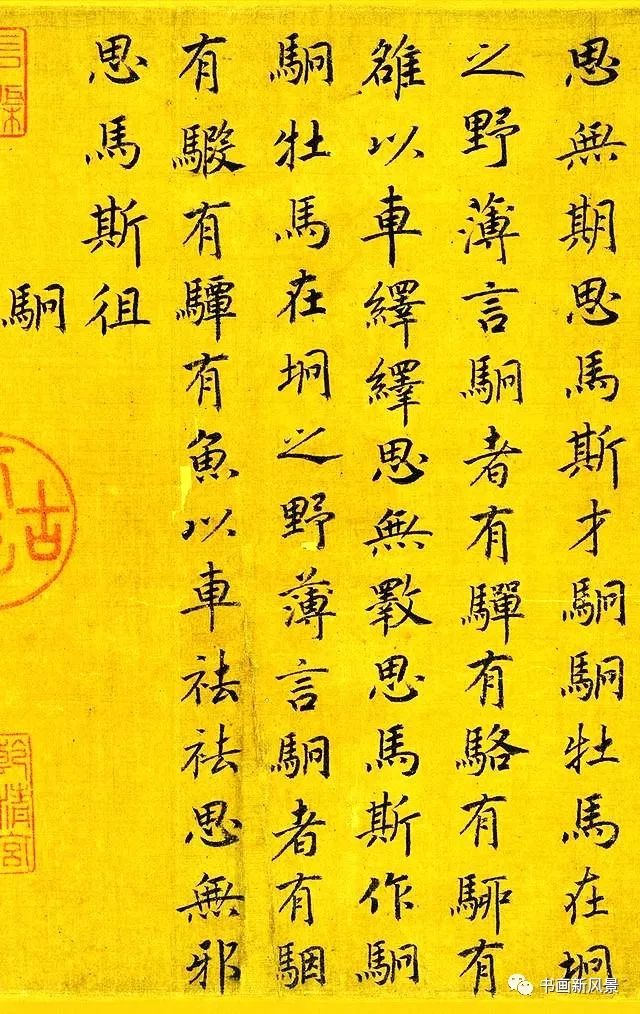 思無期思馬斯才駉駉牡馬在坰
之野薄言駉者有驒有駱有駵有
雒以車繹繹思無斁思馬斯作駉
駉牡馬在坰之野薄言駉者有駰
有騢有驔有魚以車祛祛思無邪
思馬斯徂
駉
古
乾清宮
书画新风景